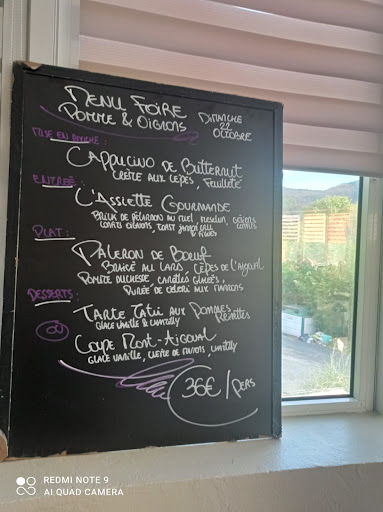 MENU FOIRE
POMME & OIGNONS
DIMANCHE
22
OCTOBRE
MISE EN BOUCHE :
CAPPUCINO DE BUTTERNUT
CRÈTE AUX CÈPES, FEUILLETÉ
ENTRÉE :
L'ASSIETTE GOURMANDE
BRICK DE PÉLARDON AU MIEL, MESCLUN, GÉSIERS CONFITS
CONFITS OIGNONS, TOAST JAMBON CRU
& FIGUES
PLAT :
PALERON DE BOEUF
BRAISÉ AU LARD, CÈPES DE L'AIGOUAL
POMME DUCHESSE, CAROTTES GLACÉES
PURÉE DE CÉLERI AUX MARRONS
DESSERTS :
TARTE TATIN AUX POMMES
REINETTES
GLACE VANILLE & CHANTILLY
OU
COUPE MONT-AIGOUAL
GLACE VANILLE, CRÈME DE MARRONS, CHANTILLY
36€ / PERS
REDMI NOTE 9
AI QUAD CAMERA